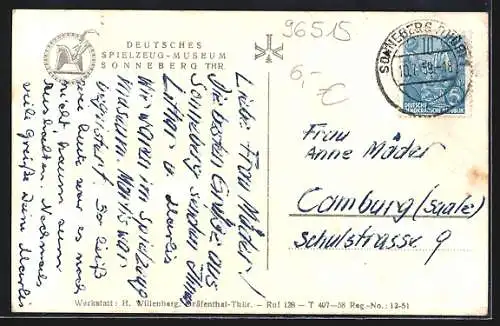 DEUTSCHES
SPIELZEUG-MUSEUM
SONNEBERG THR.
96515
6,- €
SONNEBERG (THÜR)
10.7.59
10
DEUTSCHE
DEMOKRATISCHE REPUBLIK
Liebe Frau Mäder!
Die besten Grüße aus
Sonneberg senden Ihnen
Lothar u. Marlis
Wir waren im Spielzeug
museum. Marlis war
begeistert. So heiß
wie heute war es noch
nicht kaum zum
Aushalten. Nochmals
viele Grüße Deine Marlis
Frau
Anne Mäder
Camburg (Saale)
Schulstrasse 9
Werkstatt: H. Willenberg, Gräfenthal-Thür. - Ruf 128 - T 407-58 Reg.-No.: 12-51